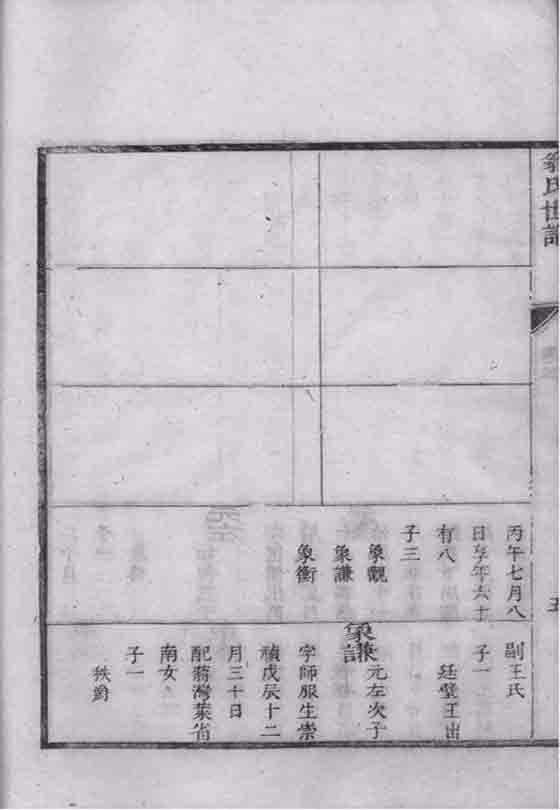 氏世譜
丙午七月八
日享年六十
有八
子三
象觀
象謙
象衡
副王氏
子一
廷璧王出
象謙
元左次子
字師服生崇
禎戊辰十二
月三十日
配蔣灣葉省
南女
子一
秩爵